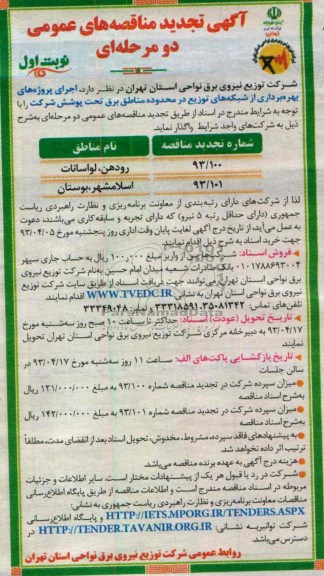 آگهی تجدید مناقصه‌های عمومی
دو مرحله‌ای
نوبت اول
شرکت توزیع نیروی برق نواحی استان تهران در نظر دارد، اجرای پروژه‌های
بهره‌برداری از شبکه‌های توزیع در محدوده مناطق برق تحت پوشش شرکت را با
توجه به شرایط مندرج در اسناد از طریق تجدید مناقصه‌های عمومی دو مرحله‌ای به‌شرح
ذیل به شرکت‌های واجد شرایط واگذار نماید.
شماره تجدید مناقصه نام مناطق
۹۳/۱۰۰ رودهن، لواسانات
۹۳/۱۰۱ اسلامشهر، بوستان
لذا از شرکت‌های دارای رتبه‌بندی از معاونت برنامه‌ریزی و نظارت راهبردی ریاست
جمهوری (دارای حداقل رتبه ۵ نیرو) که دارای تجربه و سابقه کاری می‌باشند، دعوت
به عمل می‌آید، از تاریخ درج آگهی لغایت پایان وقت اداری روز پنجشنبه مورخ ۹۳/۰۴/۰۵
جهت خرید اسناد به شرح ذیل اقدام نمایند.
فروش اسناد: شرکت‌ها پس از واریز مبلغ ۱۰۰٫۰۰۰ ریال به حساب جاری سپهر
۰۱۰۱۷۸۸۶۹۳۰۰۴ بانک صادرات شعبه میدان امام حسین به‌نام شرکت توزیع نیروی
برق نواحی استان تهران می‌توانند جهت دریافت اسناد از طریق سایت شرکت توزیع
نیروی برق نواحی استان تهران به نشانی WWW.TVEDC.IR اقدام نمایند.
تلفن‌های تماس: ۸۱۳۴۲-۳۳۳۱۸۵۹۱،۳۵ نمابر: ۳۳۳۴۹۰۴۸
تاریخ تحویل (عودت) اسناد: حداکثر تا ساعت ۱۰ صبح روز سه‌شنبه مورخ
۹۳/۰۴/۱۷ به دبیرخانه مرکزی شرکت توزیع نیروی برق نواحی استان تهران تحویل
نمایند.
تاریخ بازگشایی پاکت‌های الف: ساعت ۱۱ روز سه‌شنبه مورخ ۹۳/۰۴/۱۷ در
سالن جلسات
میزان سپرده شرکت در تجدید مناقصه شماره ۹۳/۱۰۰ به مبلغ ۱۲۱/۰۰۰/۰۰۰ ریال
به‌شرح اسناد مناقصه
میزان سپرده شرکت در تجدید مناقصه شماره ۹۳/۱۰۱ به مبلغ ۱۴۲/۰۰۰/۰۰۰ ریال
به‌شرح اسناد مناقصه
به پیشنهادهای فاقد سپرده، مشروط، مخدوش، تحویل اسناد بعد از انقضای مدت، مطلقاً
ترتیب اثر داده نخواهد شد.
هزینه درج آگهی به عهده برنده مناقصه می‌باشد.
شرکت در رد یا قبول هر یک از پیشنهادات مختار است. سایر اطلاعات و جزئیات
مربوطه در اسناد مناقصه مندرج است و اطلاعات مناقصه از طریق پایگاه اطلاع‌رسانی
مناقصات معاونت برنامه‌ریزی و نظارت راهبردی ریاست جمهوری به نشانی:
HTTP://IETS.MPORG.IR/TENDERS.ASPX و پایگاه اطلاع‌رسانی
شرکت توانیر به نشانی: HTTP://TENDER.TAVANIR.ORG.IR در
دسترس می‌باشد.
روابط عمومی شرکت توزیع نیروی برق نواحی استان تهران